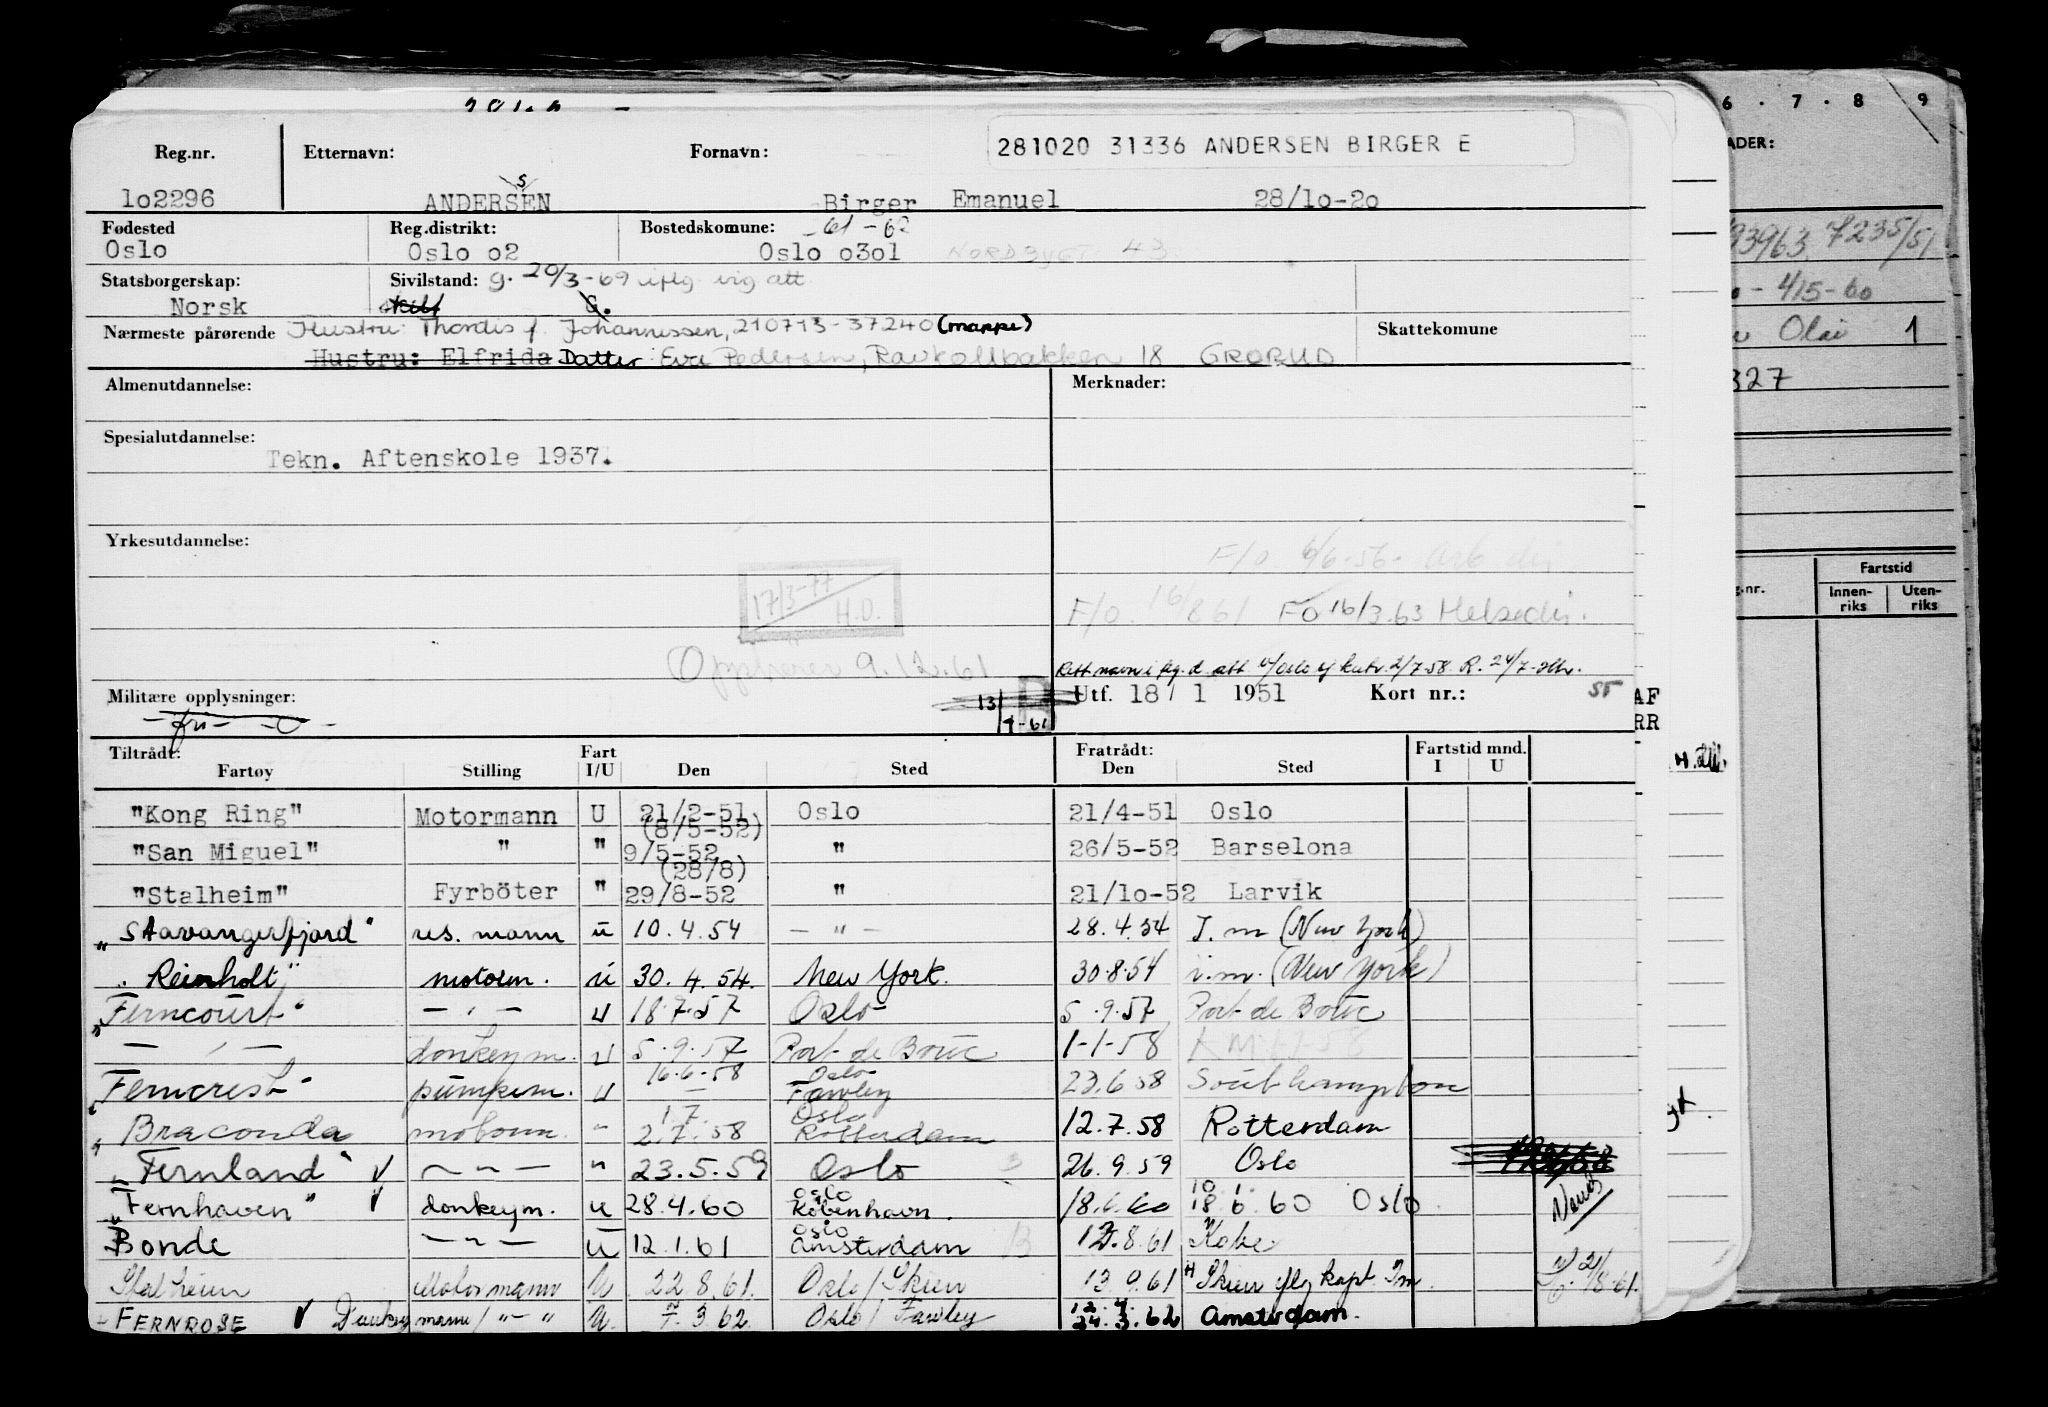 281020 31336 ANDERSEN BIRGER E
Reg.nr. Etternavn: Fornavn:
lo2296 ANDERSEN Birger Emanuel 28/lo-2o
s
Fødested Reg.distrikt: Bostedskomune: 61-62
Oslo Oslo o2 Oslo o3ol
Statsborgerskap: Sivilstand: g. 20/3-69 iflg. vig att
Norsk G.
Nærmeste pårørende Hustru: Thordis f. Johannessen, 210713-37240 (mappe) Skattekomune
Hustru: Elfrida Datter: Eva Pedersen, Ravkollbakken 18 GRORUD
Almenutdannelse: Merknader:
Spesialutdannelse:
Tekn. Aftenskole 1937.
Yrkesutdannelse:
F/o 6/6-56.
17/3-77
H.D.
F/o. 16/8 61 FO 16/3.63 Helsedir.
Opphører 9.12.61
Militære opplysninger: Utf. 18/ 1 1951 Kort nr.:
- fri -
13/
4-61
Tiltrådt: Fart Fratrådt: Fartstid mnd.
Fartøy Stilling I/U Den Sted Den Sted I U
"Kong Ring" Motormann U 21/2-51 Oslo 21/4-51 Oslo
(8/5-52)
"San Miguel" " " 9/5-52 " 26/5-52 Barselona
(28/8)
"Stalheim" Fyrböter " 29/8-52 " 21/lo-52 Larvik
"Stavangerfjord" res. mann u 10.4.54 - " - 28.4.54 I.m (New York)
"Reinholt" motorm. u 30.4.54. New York. 30.8.54 i.m. (New York)
"Ferncourt" - " - u 18.7.57 Oslo 5.9.57 Port de Bouc
- " - donkeym. u 5.9.57 Port de Bouc 1-1-58
16.6.58 Oslo
"Ferncrest" pumpem. u - Fawley 23.6.58 Southampton
1.7. Oslo
"Braconda motorm. " 2.7.58 Rotterdam 12.7.58 Rotterdam
"Fernland" ✓ - " - " 23.5.59 Oslo 26.9.59 Oslo
Oslo 10 1.
"Fernhaven" ✓ donkeym. u 28.4.60 København. 18.6.60 18.6.60 Oslo
Oslo
Bonde - " - u 12.1.61 Amsterdam 12.8.61 Kobe
Stalheim Motormann U 22.8.61. Oslo/Skien 13.9.61 Skien iflg kapt. I.m.
FERNROSE ✓ Donkeymann/ " - " U. 7.3.62 Oslo/Fawley 24.3.62 Amsterdam.
6 . 7 . 8 9
ADER:
93963. 7235/51
415-60
Olai 1
327
Fartstid
g.nr. Innen- Uten-
riks riks
AF
RR